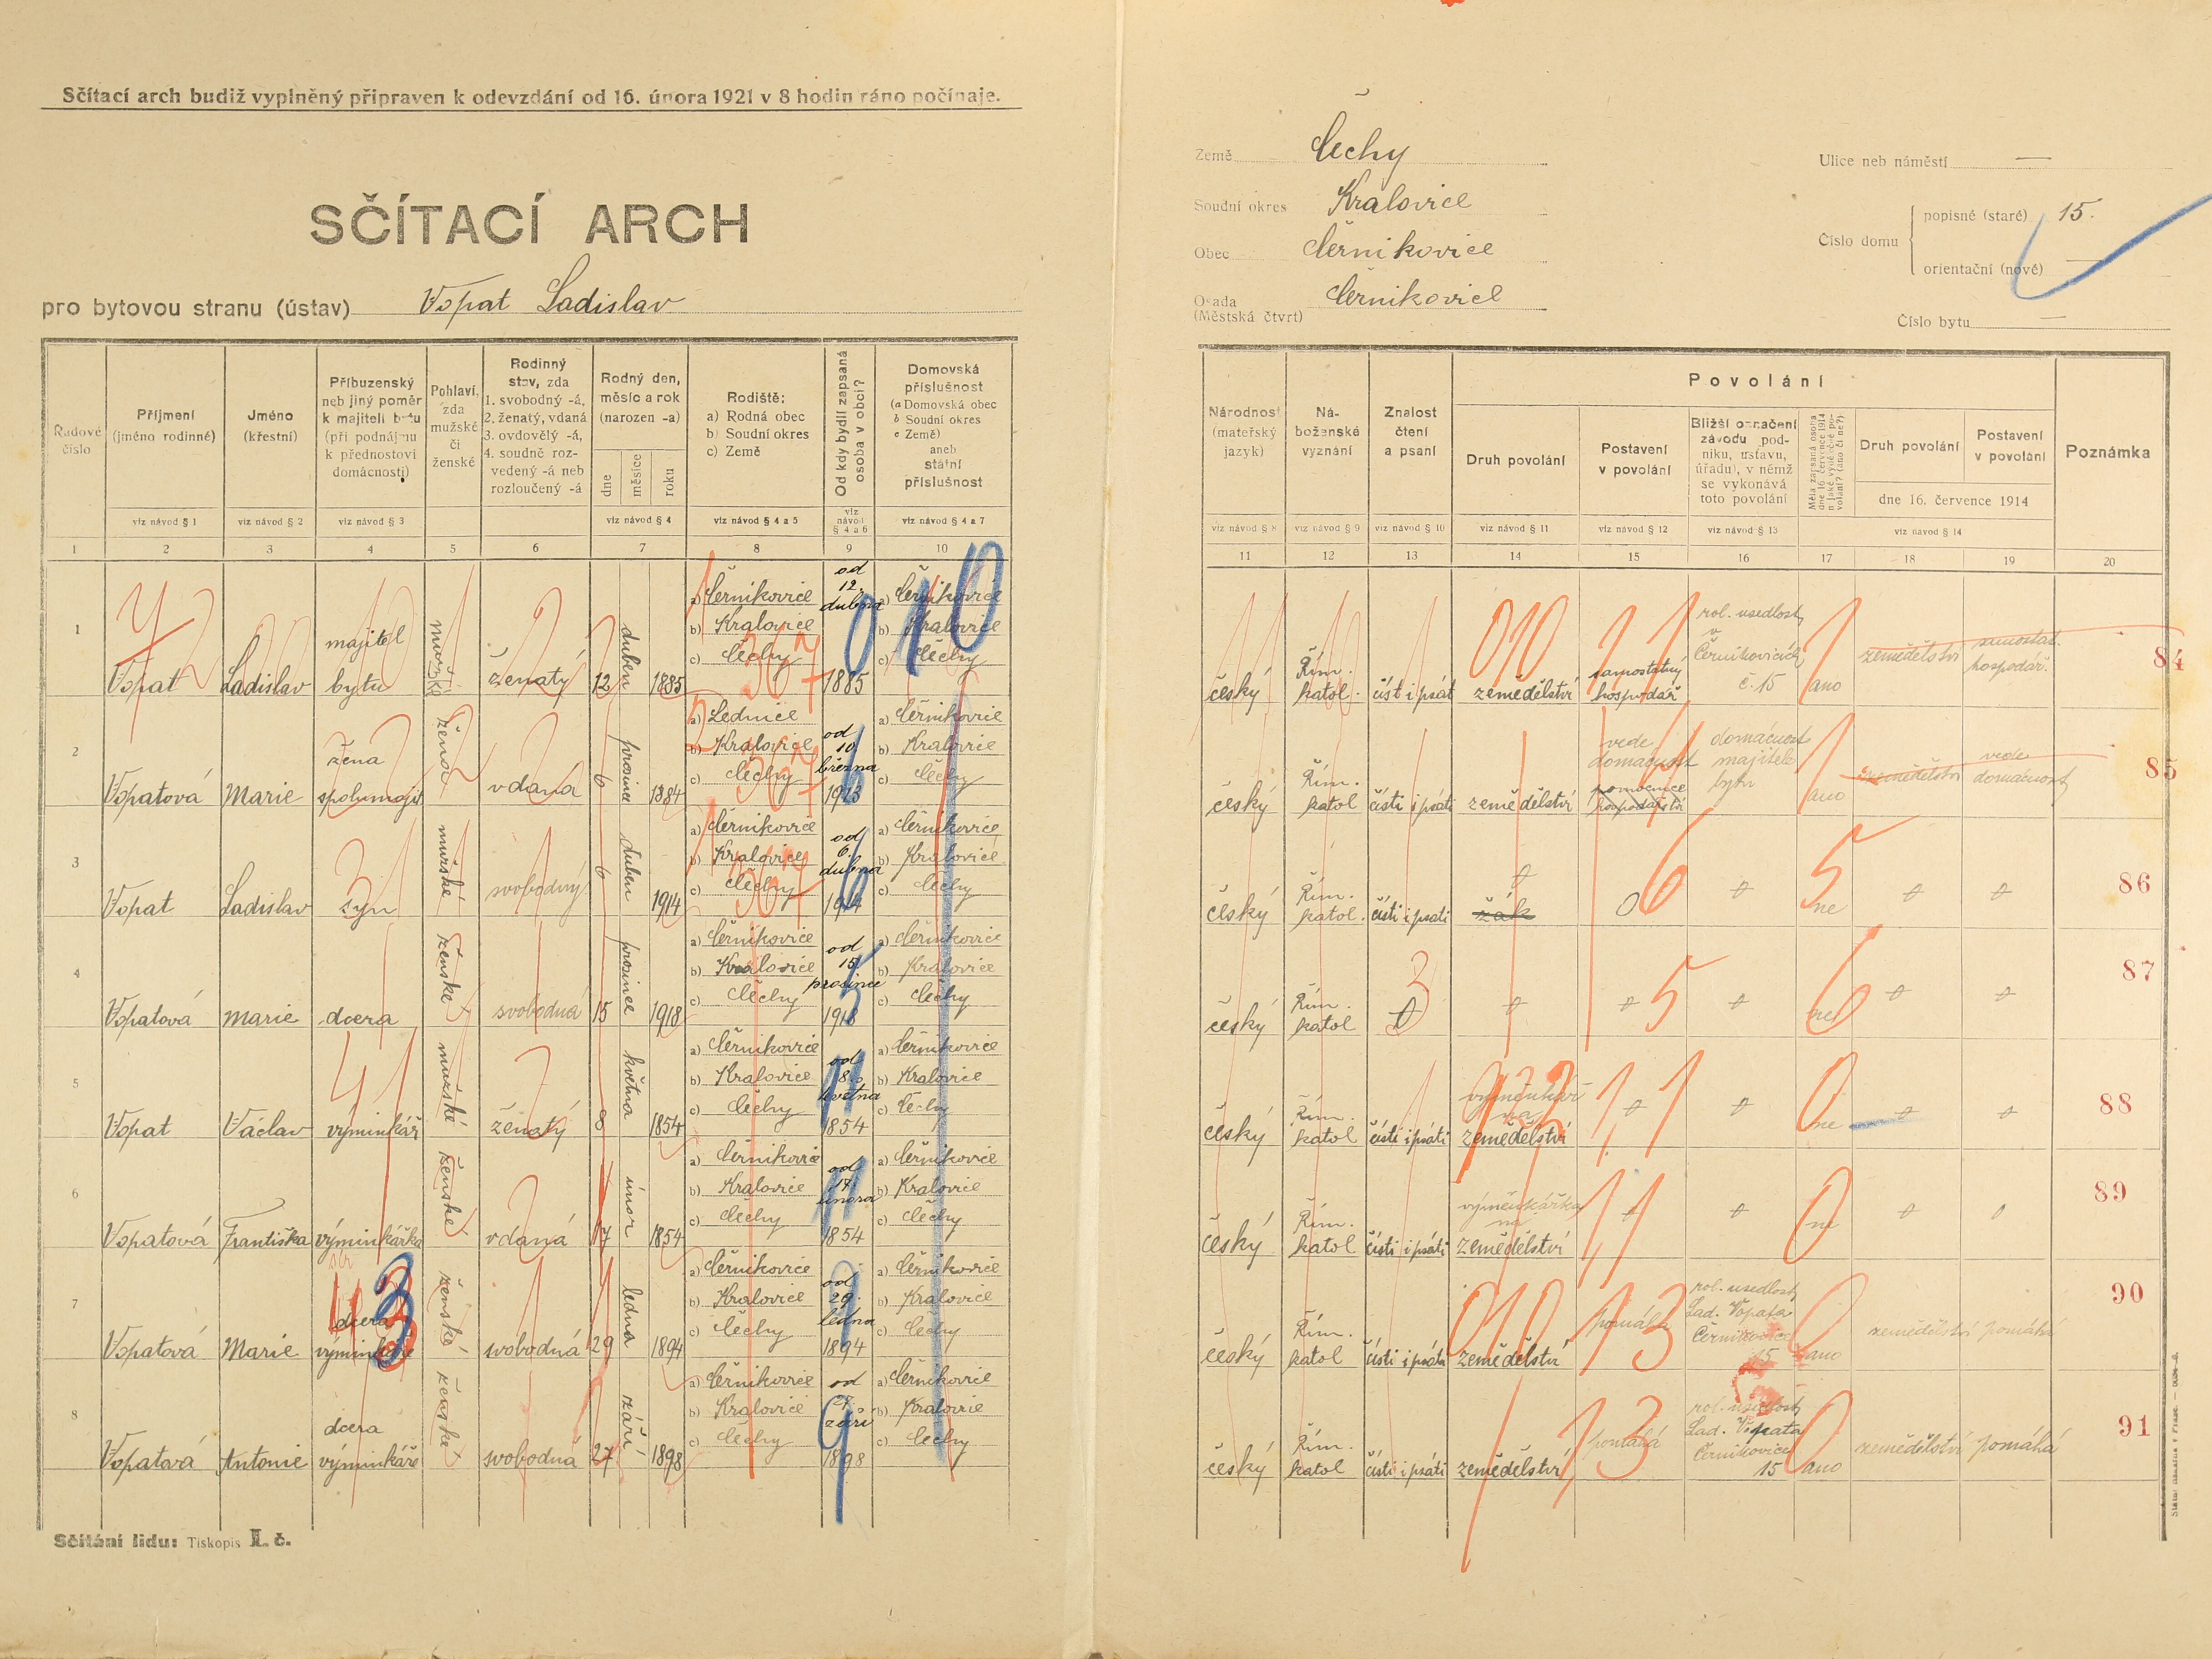 Sčítací arch budiž vyplněný připraven k odevzdání od 16. února 1921 v 8 hodin ráno počínaje.
SČÍTACÍ ARCH
pro bytovou stranu (ústav) Vopat Ladislav
Země Čechy
Soudní okres Kralovice
Obec Černikovice
Osada Černikovice
(Městská čtvrt)
Ulice neb náměstí —
Číslo domu
popisné (staré) 15.
orientační (nové) —
Číslo bytu —
Řadové číslo
Příjmení (jméno rodinné)
Jméno (křestní)
Příbuzenský neb jiný poměr k majiteli bytu (při podnájmu k přednostovi domácnosti)
Pohlaví, zda mužské či ženské
Rodinný stav, zda 1. svobodný -á, 2. ženatý, vdaná 3. ovdovělý -á, 4. soudně rozvedený -á neb rozloučený -á
Rodný den, měsíc a rok (narozen -a)
dne měsíce roku
Rodiště: a) Rodná obec b) Soudní okres c) Země
Od kdy bydlí zapsaná osoba v obci?
Domovská příslušnost (a Domovská obec b Soudní okres c Země) aneb státní příslušnost
Národnost (mateřský jazyk)
Náboženské vyznání
Znalost čtení a psaní
Povolání
Druh povolání
Postavení v povolání
Bližší označení závodu, podniku, ústavu, úřadu), v němž se vykonává toto povolání
Druh povolání
Postavení v povolání
dne 16. července 1914
Poznámka
viz návod § 1
viz návod § 2
viz návod § 3
viz návod § 4
viz návod § 4 a 5
viz návod § 4 a 6
viz návod § 4 a 7
viz návod § 8
viz návod § 9
viz návod § 10
viz návod § 11
viz návod § 12
viz návod § 13
viz návod § 14
1 2 3 4 5 6 7 8 9 10 11 12 13 14 15 16 17 18 19 20
1 Vopat Ladislav majitel bytu mužské ženatý 12 duben 1885 a) Černikovice b) Kralovice c) Čechy od 12. dubna 1885 a) Černikovice b) Kralovice c) Čechy český Řím. katol. číst i psát zemědělství samostatný hospodář rol. usedlost v Černikovicích č. 15 ano zemědělství samostat. hospodář. 84
2 Vopatová Marie žena spolumajit žena vdaná 6 prosinec 1884 a) Lednice b) Kralovice c) Čechy od 10 března 1913 a) Černikovice b) Kralovice c) Čechy český Řím. katol čísti i psáti zemědělství vede domácnost domácnost majitele bytu ano zemědělství vede domácnost 85
3 Vopat Ladislav syn mužské svobodný 6 duben 1914 a) Černikovice b) Kralovice c) Čechy od 6. dubna 1914 a) Černikovice b) Kralovice c) Čechy český Řím. katol. čísti i psáti žák 0 ne 86
4 Vopatová Marie dcera ženské svobodná 15 prosinec 1918 a) Černikovice b) Kralovice c) Čechy od 15 prosince 1918 a) Černikovice b) Kralovice c) Čechy český Řím. katol ne 87
5 Vopat Václav výminkář mužské ženatý 8 května 1854 a) Černikovice b) Kralovice c) Čechy od 8. května 1854 a) Černikovice b) Kralovice c) Čechy český Řím. katol čísti i psáti výměnkář na zemědělství ne 88
6 Vopatová Františka výminkářka ženské vdaná 17 únor 1854 a) Černikovice b) Kralovice c) Čechy od 17. února 1854 a) Černikovice b) Kralovice c) Čechy český Řím. katol čísti i psáti výměnkářka na zemědělství ne 89
7 Vopatová Marie dcera výminkáře ženské svobodná 29 ledna 1894 a) Černikovice b) Kralovice c) Čechy od 29. ledna 1894 a) Černikovice b) Kralovice c) Čechy český Řím. katol čísti i psáti zemědělství pomáhá rol. usedlost Lad. Vopata Černikovice 15 ano zemědělství pomáhá 90
8 Vopatová Antonie dcera výminkáře ženské svobodná 27 září 1898 a) Černikovice b) Kralovice c) Čechy od 27. září 1898 a) Černikovice b) Kralovice c) Čechy český Řím. katol čísti i psáti zemědělství pomáhá rol. usedlost Lad. Vopata Černikovice 15 ano zemědělství pomáhá 91
Sčítání lidu: Tiskopis I. č.